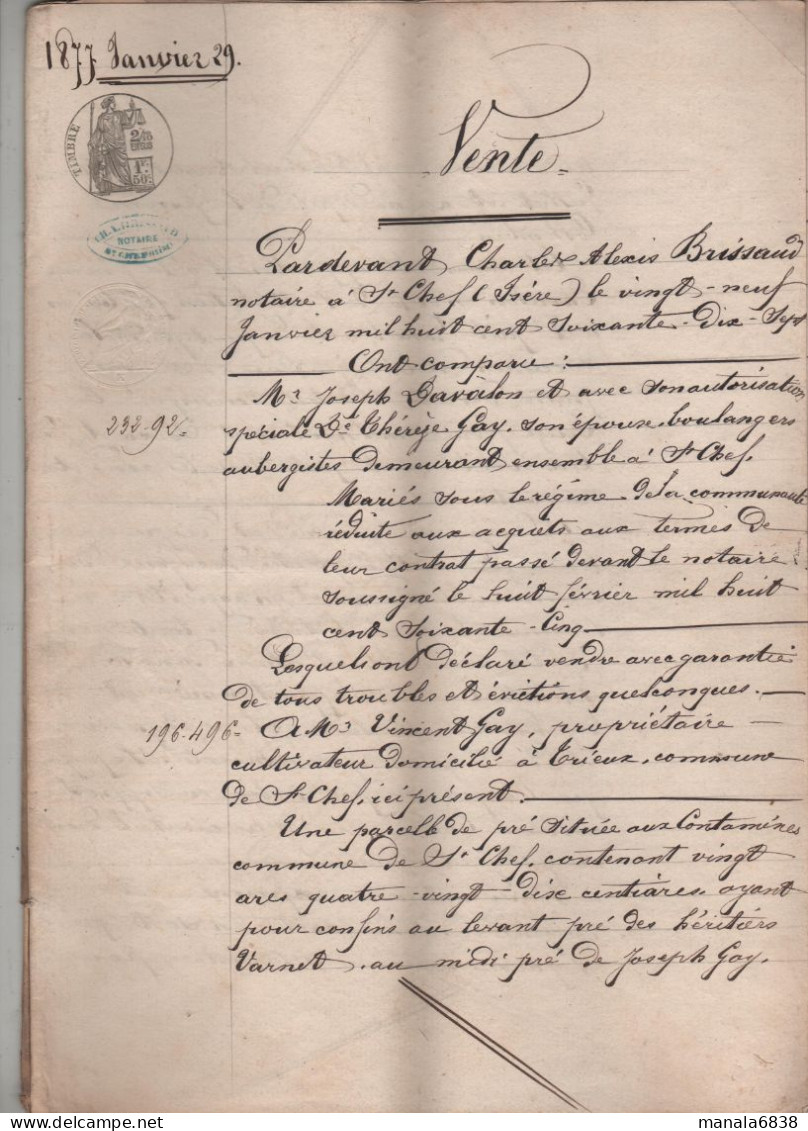 1877 Janvier 29.
TIMBRE
2/10
EN SUS
1F.
50c.
NOTAIRE
Vente
Pardevant Charles Alexis Brissaud
notaire à St Chef (Isére) le vingt-neuf
Janvier mil huit cent soixante-dix-sept
Ont comparu :
Mr Joseph Davalon et avec son autorisation
232-92
spéciale De Thérèze Gay, son épouse, boulangers
aubergistes demeurant ensemble à St Chef.
Mariés sous le régime de la communauté
réduite aux acquêts aux termes de
leur contrat passé devant le notaire
soussigné le huit février mil huit
cent soixante-cinq
Lesquels ont déclaré vendre avec garantie
de tous troubles et évictions quelconques.
196.496
A Mr Vincent Gay, propriétaire
cultivateur domicilié à Trieux, commune
de St Chef, ici présent.
Une parcelle de pré située aux Contamines
commune de St Chef, contenant vingt
ares quatre-vingt-dix centiares, ayant
pour confins au levant pré des héritiers
Varnet, au midi pré de Joseph Gay,
manala6838